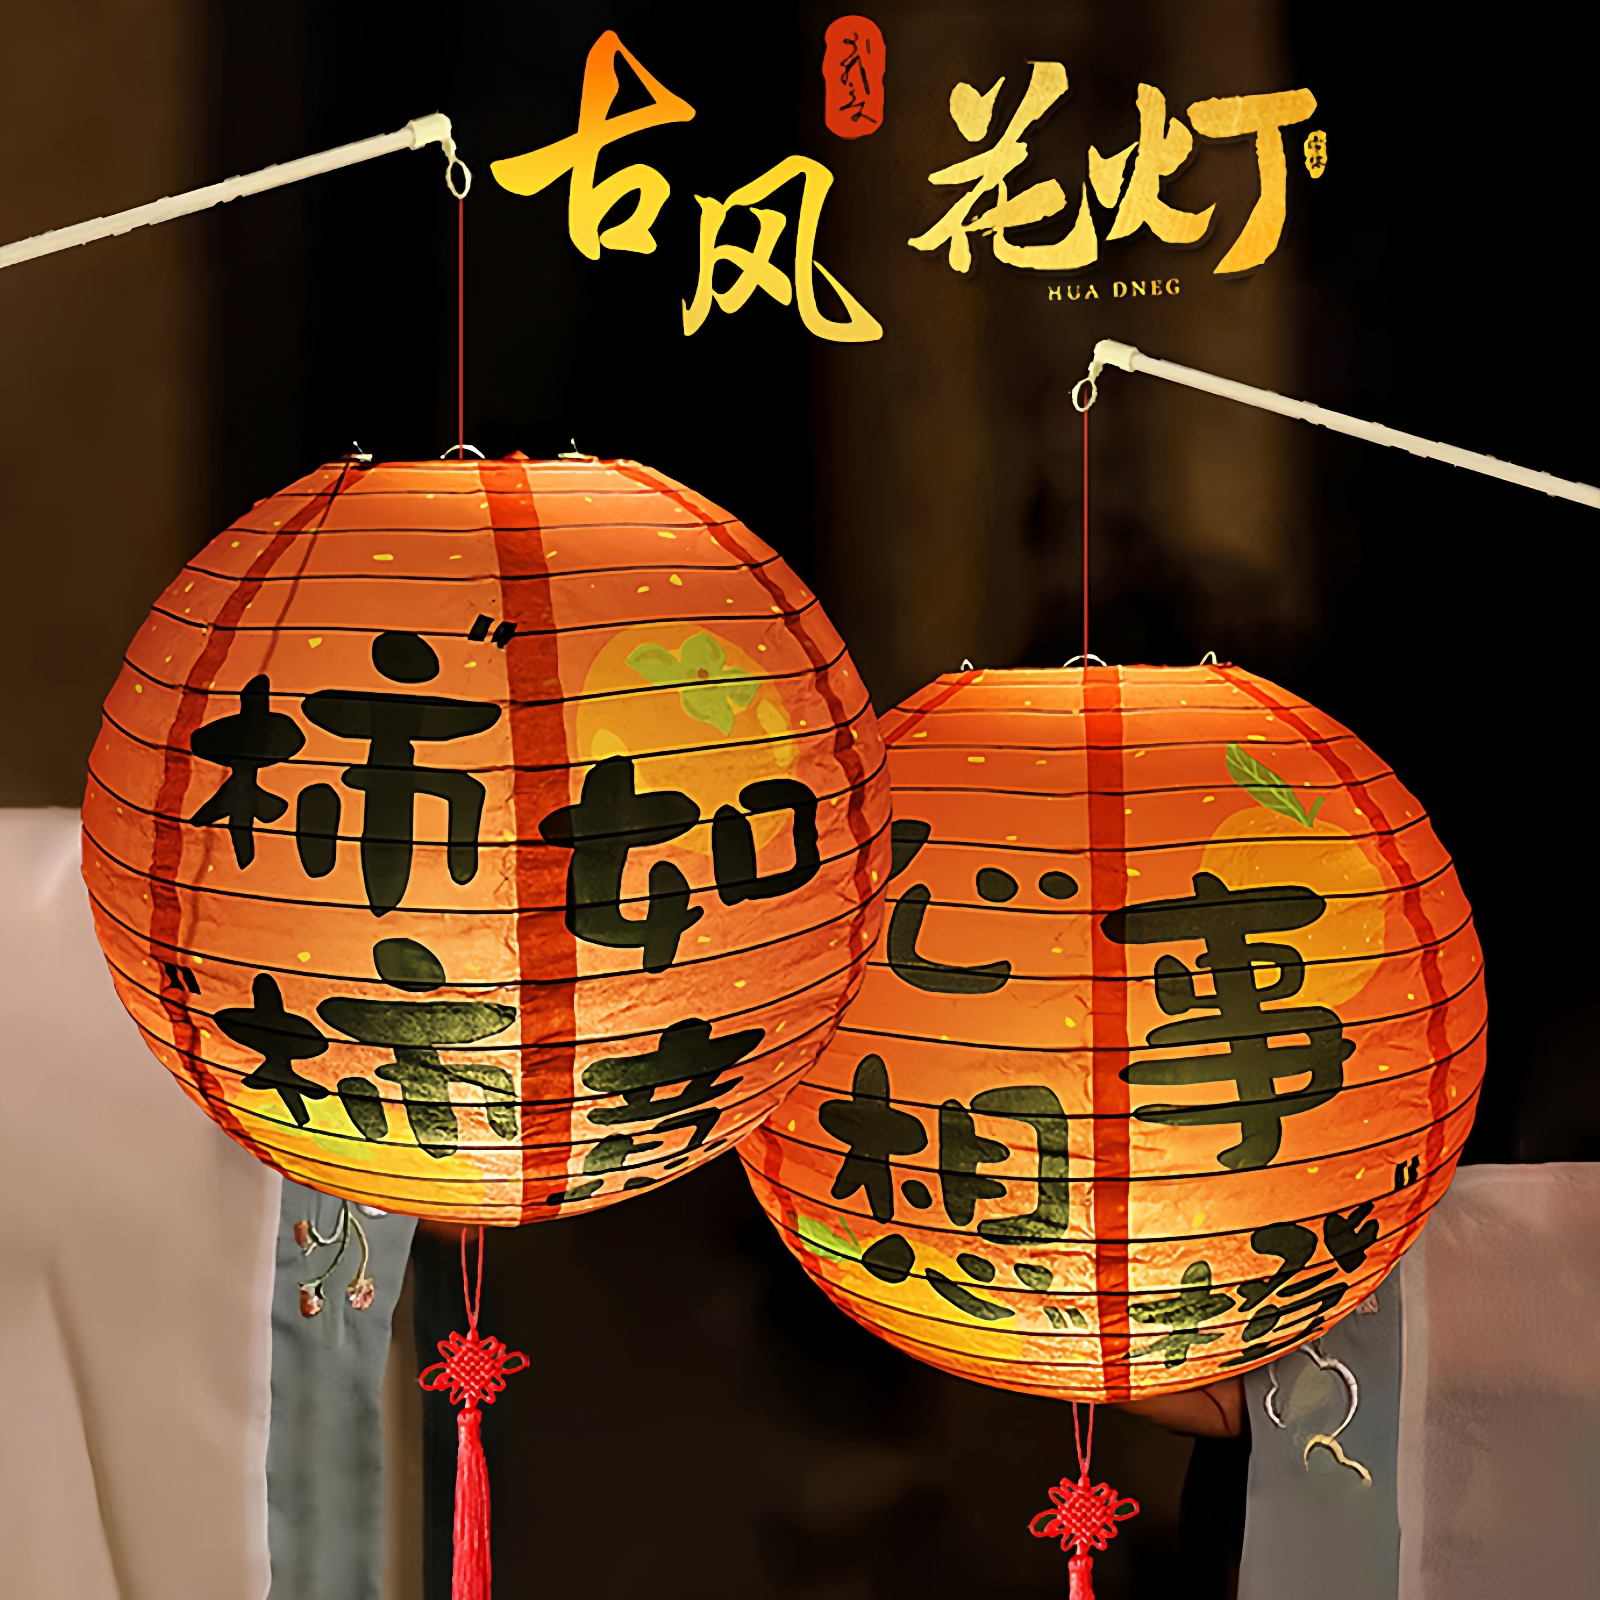 古风
花灯
HUA DNEG
“柿柿”
如意
心想
事“橙”